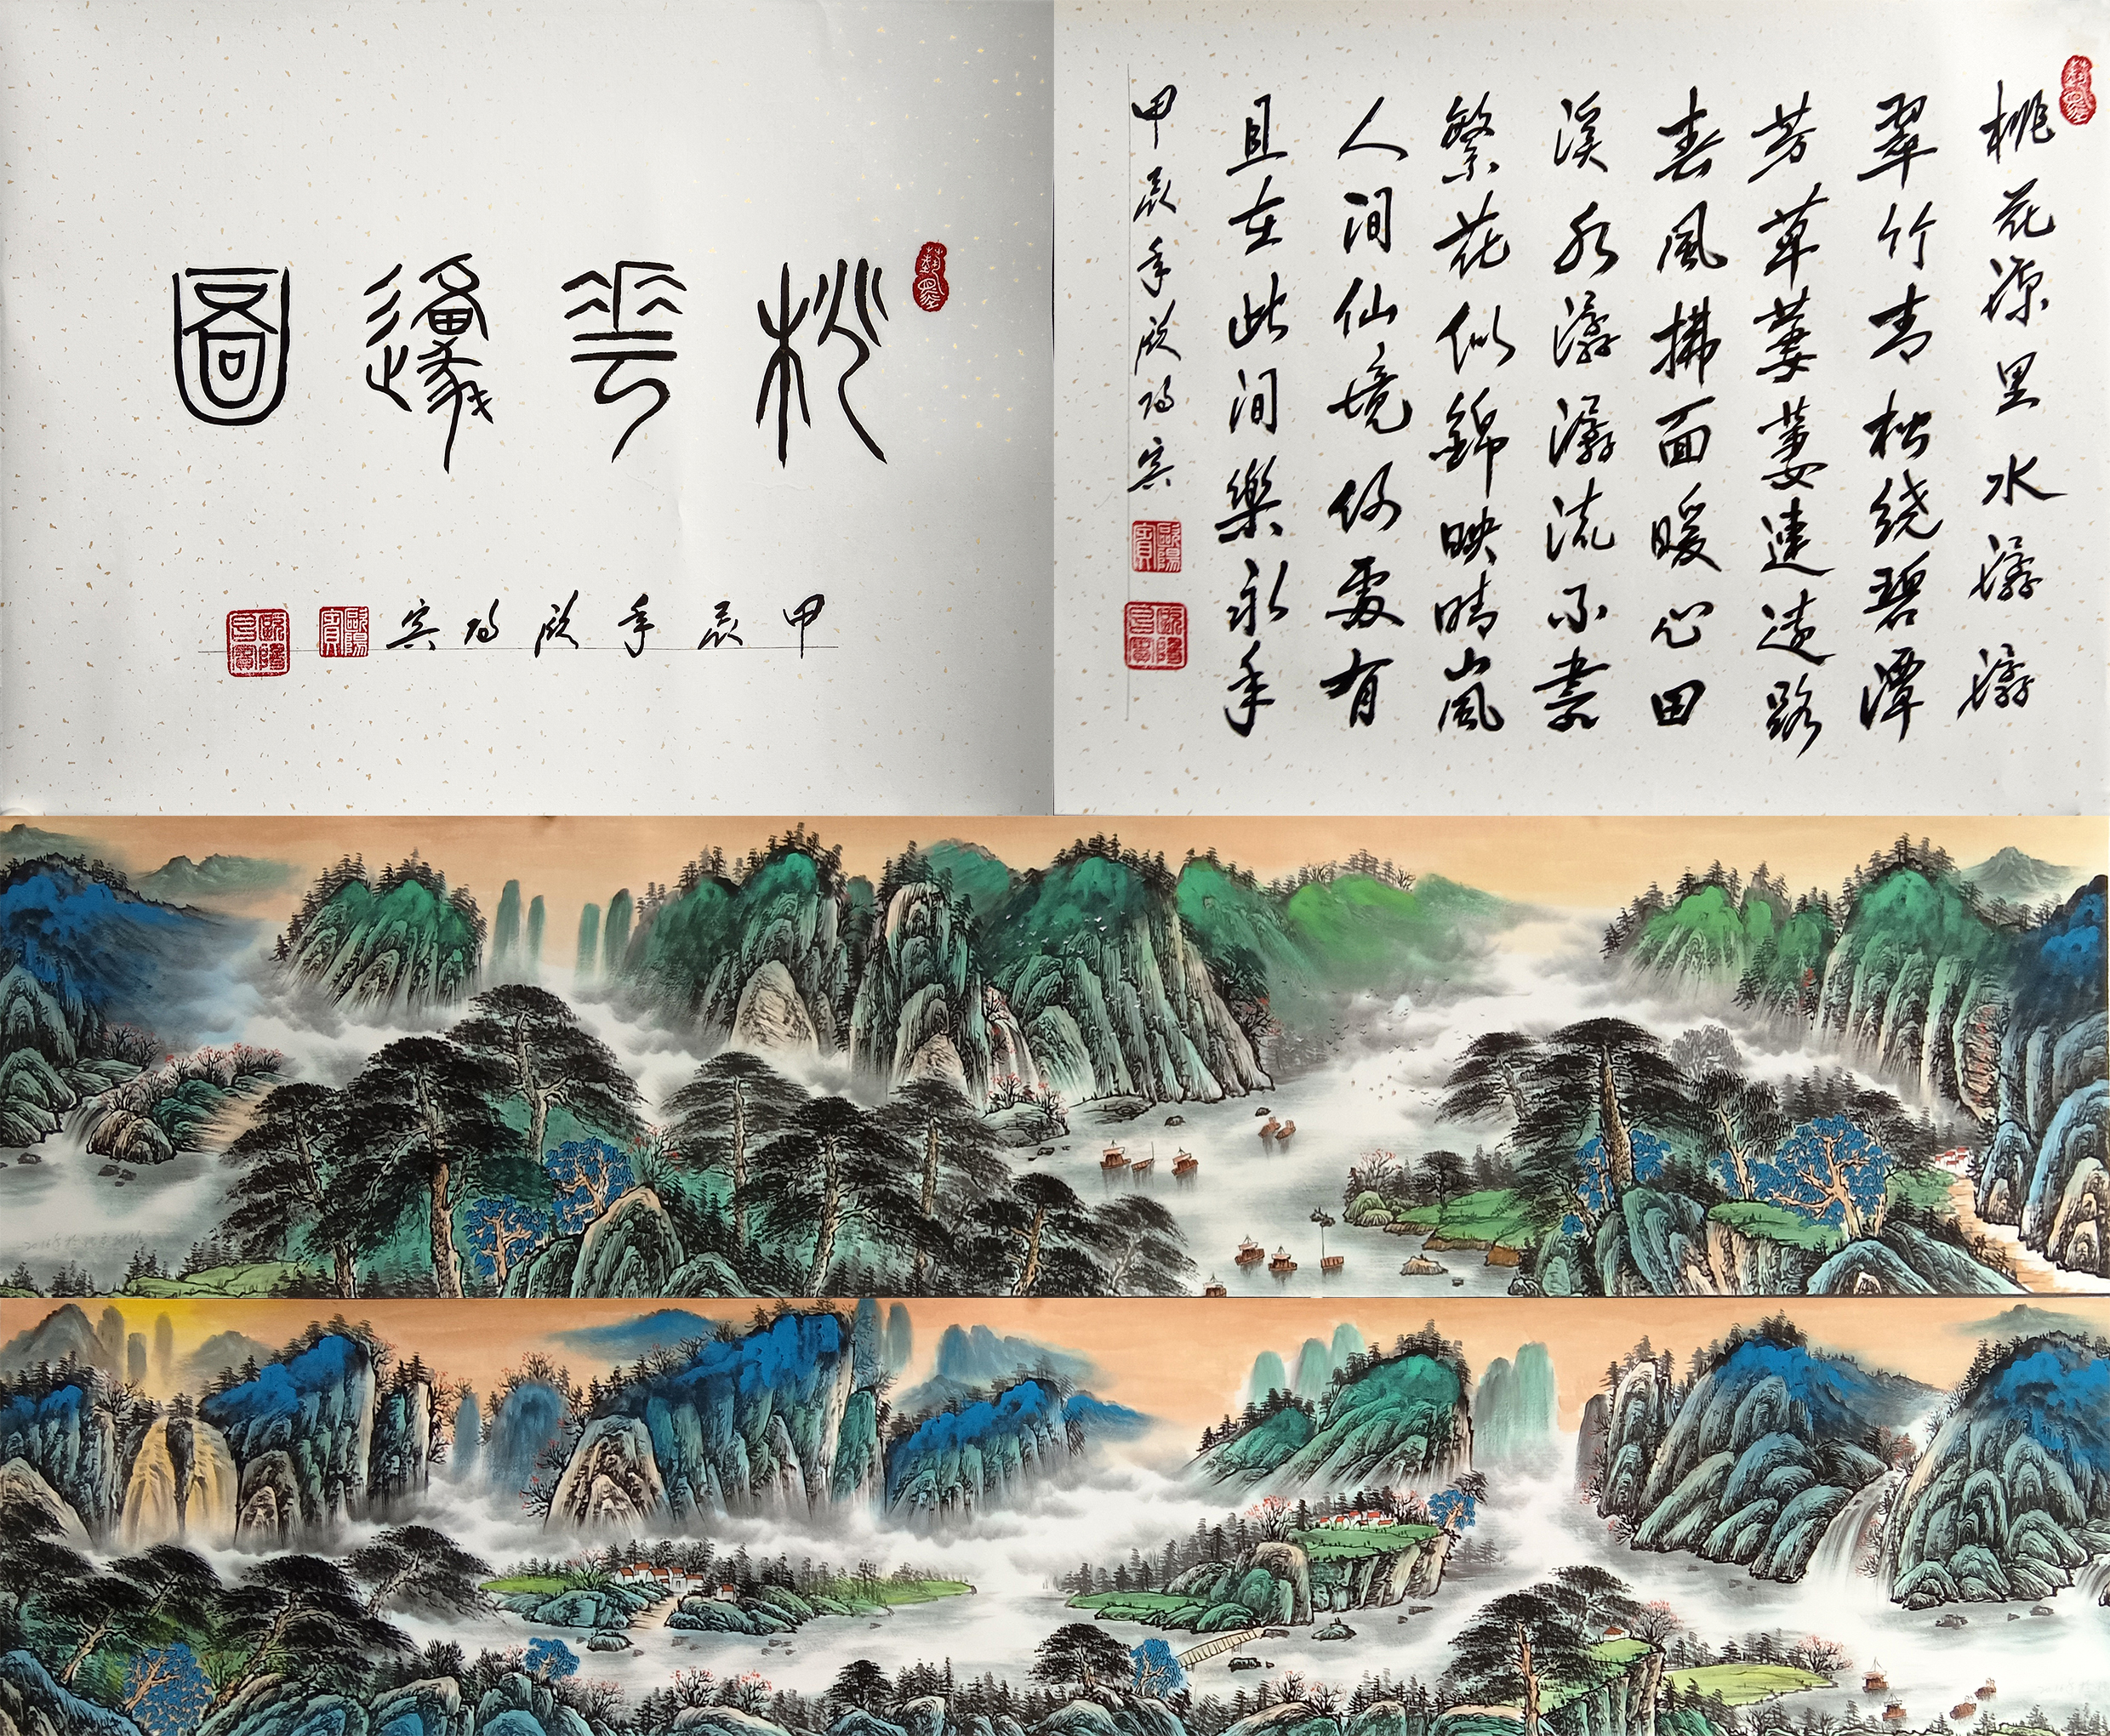 桃華邍圖
甲辰年欧阳宾
歐陽賓
桃花源里水潺潺
翠竹青松绕碧潭
芳草萋萋連遠路
春風拂面暖心田
溪水潺潺流不盡
繁花似錦映晴嵐
人间仙境何處有
且在此间樂永年
甲辰年欧阳宾
歐陽賓